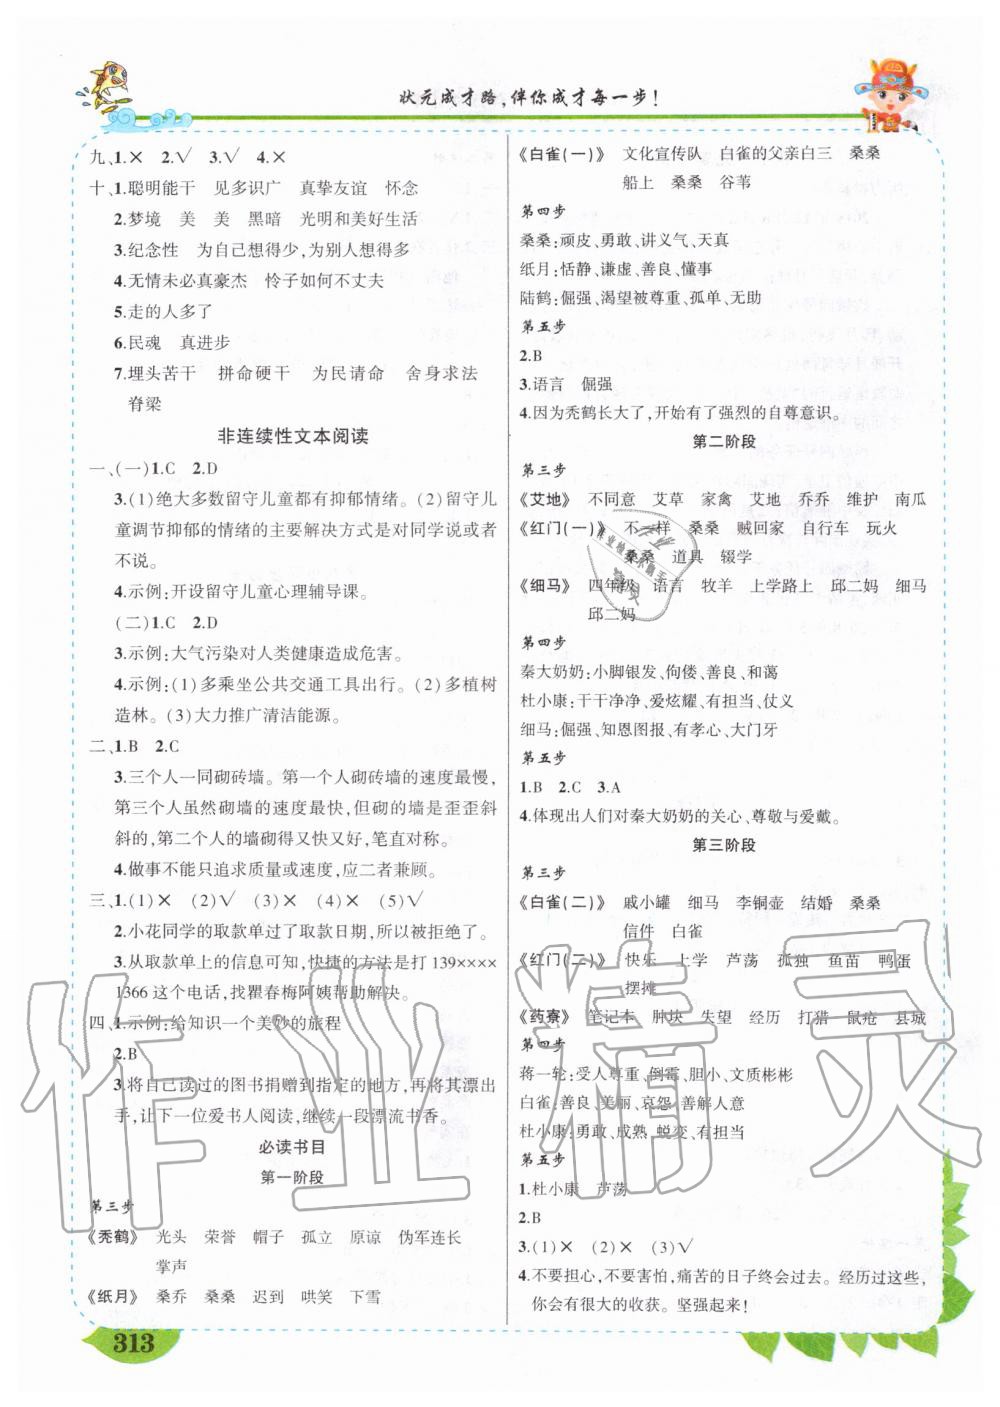 状元成才路,伴你成才每一步!
九、1.× 2.√ 3.√ 4.×
十、1.聪明能干 见多识广 真挚友谊 怀念
2.梦境 美 美 黑暗 光明和美好生活
3.纪念性 为自己想得少,为别人想得多
4.无情未必真豪杰 怜子如何不丈夫
5.走的人多了
6.民魂 真进步
7.埋头苦干 拼命硬干 为民请命 舍身求法
脊梁
非连续性文本阅读
一、(一)1.C 2.D
3.(1)绝大多数留守儿童都有抑郁情绪。(2)留守儿
童调节抑郁的情绪的主要解决方式是对同学说或者
不说。
4.示例:开设留守儿童心理辅导课。
(二)1.C 2.D
3.示例:大气污染对人类健康造成危害。
4.示例:(1)多乘坐公共交通工具出行。(2)多植树
造林。(3)大力推广清洁能源。
二、1.B 2.C
3.三个人一同砌砖墙。第一个人砌砖墙的速度最慢,
第三个人虽然砌墙的速度最快,但砌的墙是歪歪斜
斜的,第二个人的墙砌得又快又好,笔直对称。
4.做事不能只追求质量或速度,应二者兼顾。
三、1.(1)× (2)√ (3)√ (4)× (5)√
2.小花同学的取款单过了取款日期,所以被拒绝了。
3.从取款单上的信息可知,快捷的方法是打 139××××
1366 这个电话,找瞿春梅阿姨帮助解决。
四、1.示例:给知识一个美妙的旅程
2.B
3.将自己读过的图书捐赠到指定的地方,再将其漂出
手,让下一位爱书人阅读,继续一段漂流书香。
必读书目
第一阶段
第三步
《秃鹤》 光头 荣誉 帽子 孤立 原谅 伪军连长
掌声
《纸月》 桑乔 桑桑 迟到 哄笑 下雪
《白雀(一)》 文化宣传队 白雀的父亲白三 桑桑
船上 桑桑 谷苇
第四步
桑桑:顽皮、勇敢、讲义气、天真
纸月:恬静、谦虚、善良、懂事
陆鹤:倔强、渴望被尊重、孤单、无助
第五步
2.B
3.语言 倔强
4.因为秃鹤长大了,开始有了强烈的自尊意识。
第二阶段
第三步
《艾地》 不同意 艾草 家禽 艾地 乔乔 维护 南瓜
《红门(一)》 不一样 桑桑 贼回家 自行车 玩火
桑桑 道具 辍学
《细马》 四年级 语言 牧羊 上学路上 邱二妈 细马
邱二妈
第四步
秦大奶奶:小脚银发、佝偻、善良、和蔼
杜小康:干干净净、爱炫耀、有担当、仗义
细马:倔强、知恩图报、有孝心、大门牙
第五步
1.B 2.C 3.A
4.体现出人们对秦大奶奶的关心、尊敬与爱戴。
第三阶段
第三步
《白雀(二)》 戚小罐 细马 李铜壶 结婚 桑桑
信件 白雀
《红门(二)》 快乐 上学 芦荡 孤独 鱼苗 鸭蛋
摆摊
《药寮》 笔记本 肿块 失望 经历 打猎 鼠疮 县城
第四步
蒋一轮:受人尊重、倒霉、胆小、文质彬彬
白雀:善良、美丽、哀怨、善解人意
杜小康:勇敢、成熟、蜕变、有担当
第五步
1.杜小康 芦荡
2.B
3.(1)× (2)× (3)√
4.不要担心,不要害怕,痛苦的日子终会过去。经历过这些,
你会有很大的收获。坚强起来!
313
作业精灵